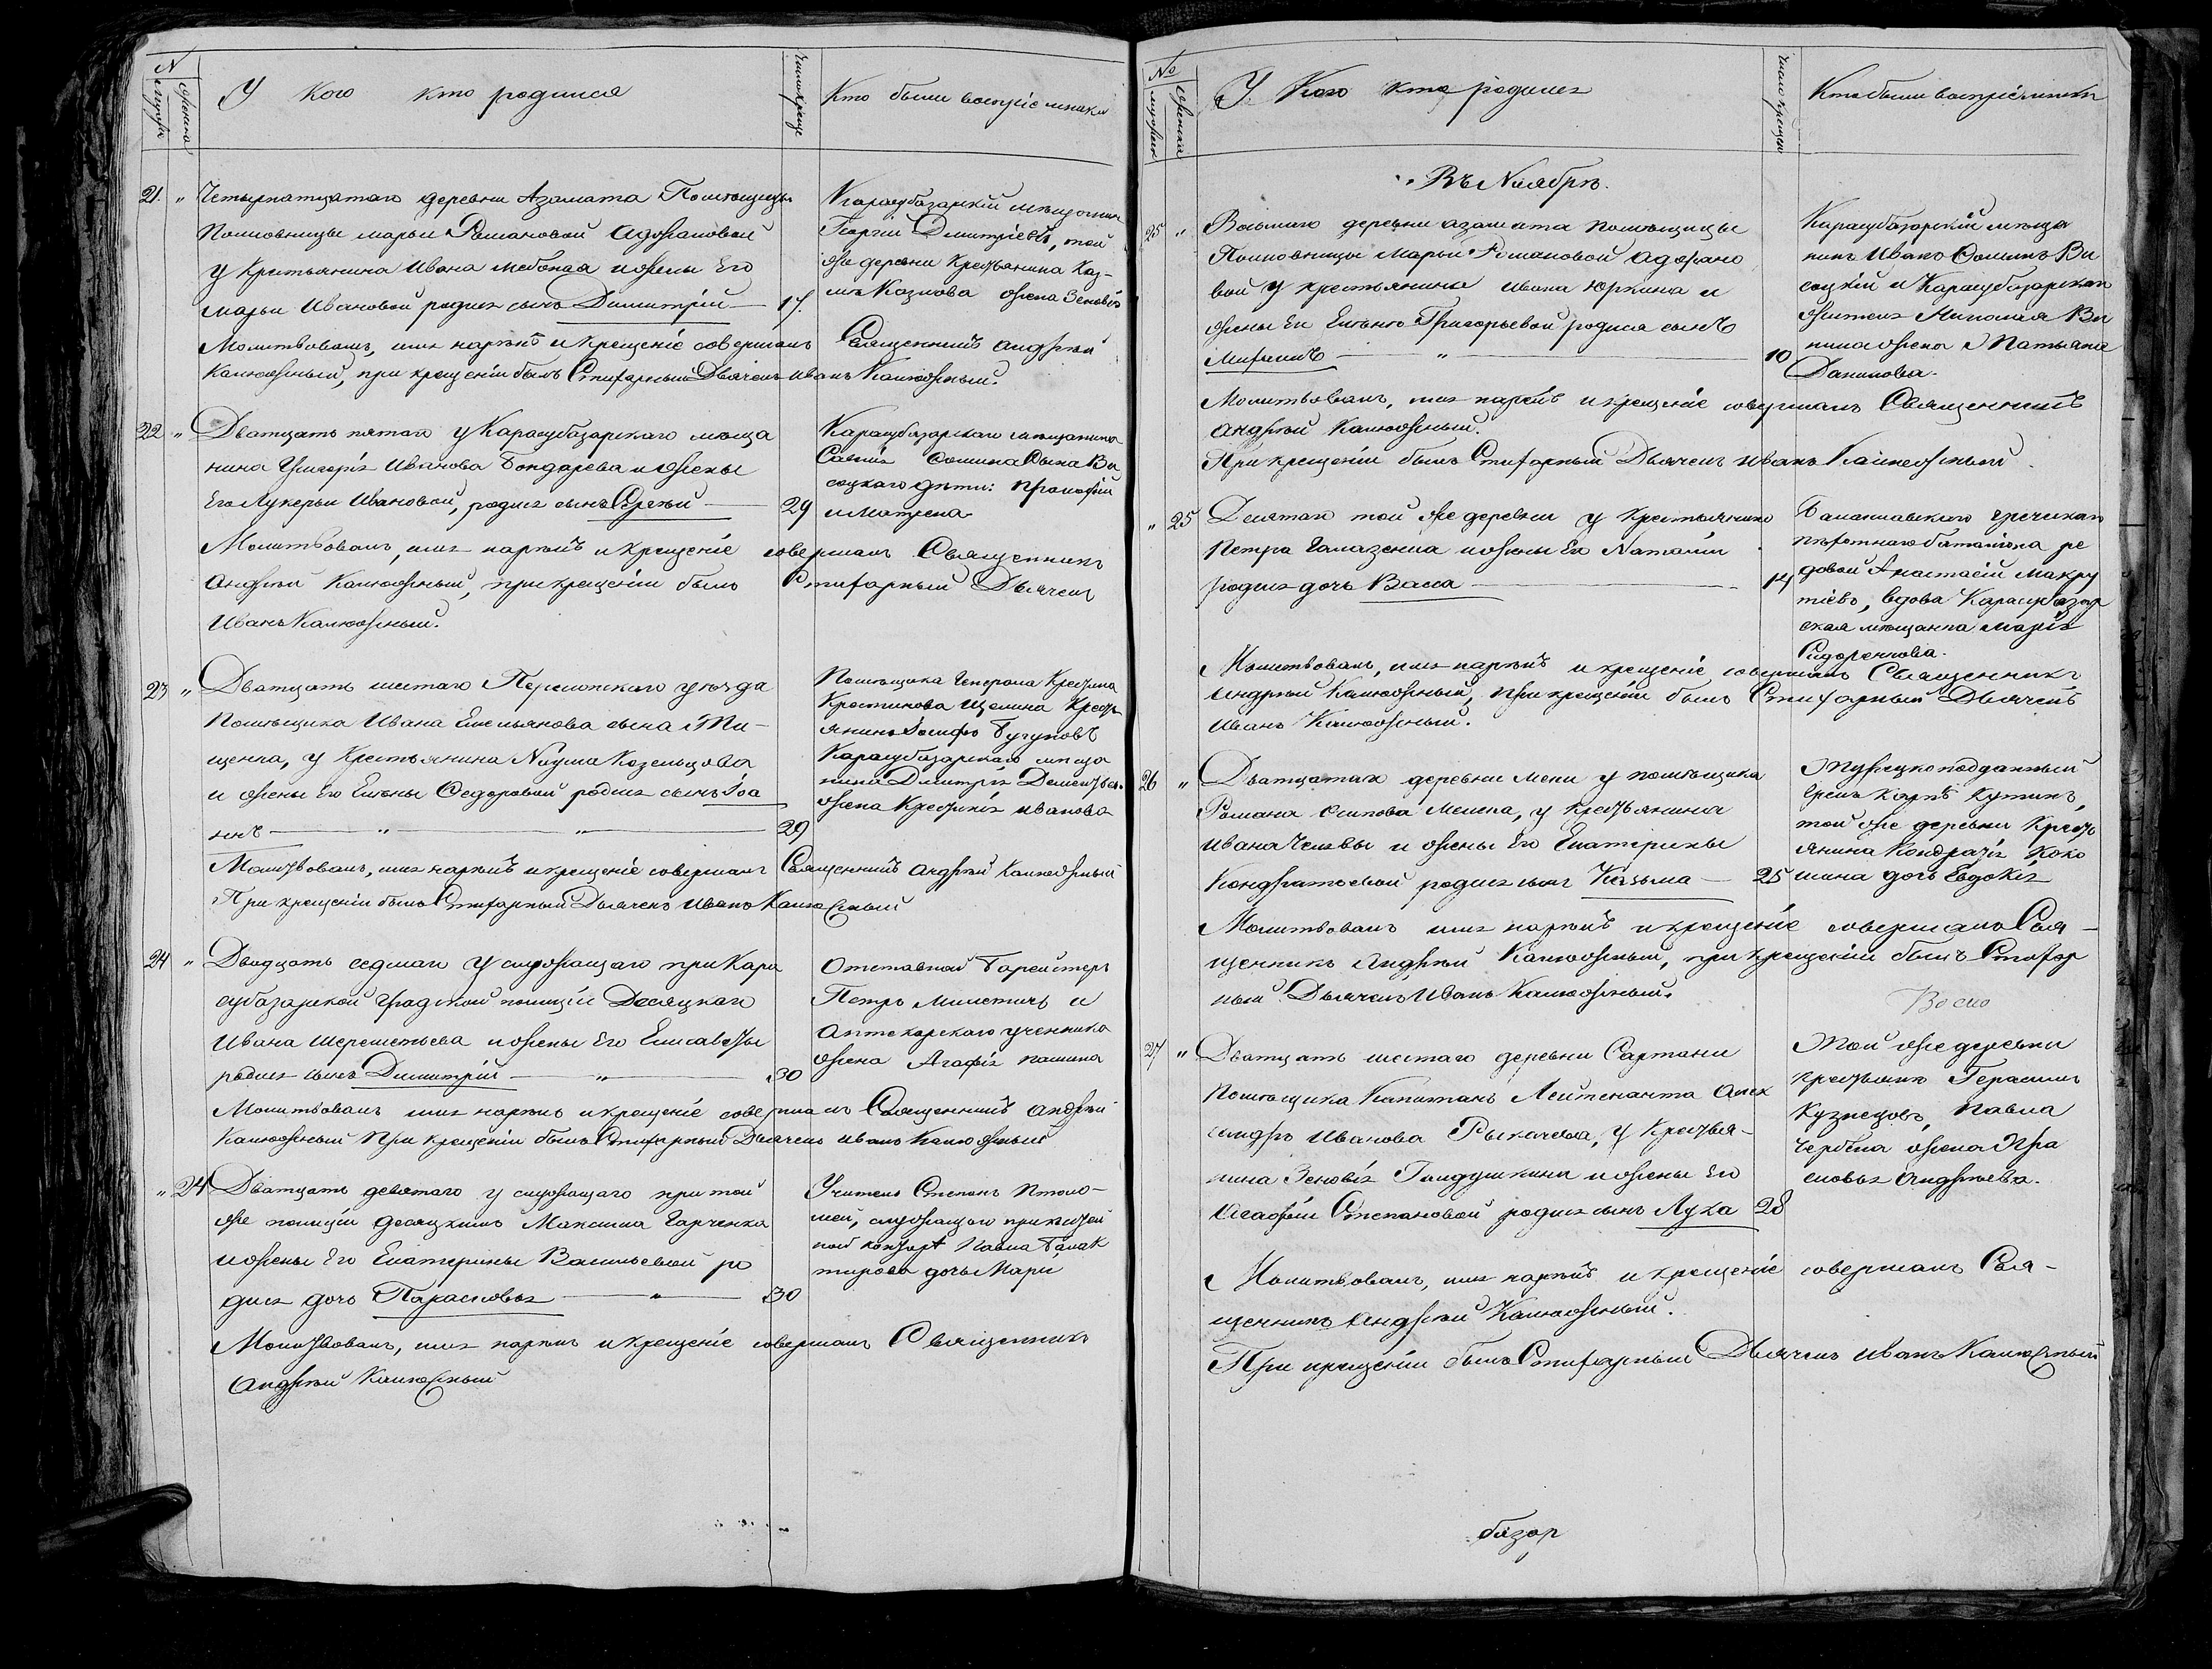 N
мужеска
женска
У кого кто родился
Число креще
Кто были воспріемники
21. „ Четырнатцатаго деревни Азамата Помѣщицы
Полковницы Марьи Романовой Аджановой
у Крестьянина Ивана и жены Его
Марьи Ивановой родился сынъ Димитрій — 17.
Карасубазарскій мѣщанинъ
Георгій Дмитріевъ, той
же деревни Крестьянина Коз-
мы Козлова жена Зеновія
Молитвовалъ, имя нарекъ и крещеніе совершалъ Священникъ Андрей
Калюжный, при крещеніи былъ Стихарный Дьячекъ Иванъ Калюжный.
22 „ Дватцать пятаго у Карасубазарскаго мѣща
нина Григорія Иванова Бондарева и жены
Его Лукерьи Ивановой, родился сынъ Сергѣй — 29
Карасубазарскаго мѣщанина
Савія Сомина Сына Ви
соцкаго дѣти: Прокофій
и Матрена
Молитвовалъ, имя нарекъ и крещеніе совершалъ Священникъ
Андрей Калюжный, при крещеніи былъ Стихарный Дьячекъ
Иванъ Калюжный.
23 „ Дватцать шестаго Перекопскаго уѣзда
Помѣщика Ивана Емельянова сына Ти-
щенка, у Крестьянина Наума Козельцова
и жены Его Елены Федоровой родился сынъ Іоа
ннъ — „ — „ — 29
Помѣщика Генерала
Крестьянова Щелина Крест
янинъ Іосифъ Бугуновъ
Карасубазарскаго мѣща
нина Дмитрія
жена Иванова
Молитвовалъ, имя нарекъ и крещеніе совершалъ Священникъ Андрей Калюжный
При крещеніи былъ Стихарный Дьячекъ Иванъ Калюжный
24 „ Двадцать седмаго У служащаго при Кара
субазарской Градской полиціи Десяцкаго
Ивана Шереметьева и жены Его Елисаветы
родился сынъ Димитрій — „ — 30
Отставной
Петръ Милетичъ и
Аптекарскаго ученика
жена Агафія
Молитвовалъ имя нарекъ и крещеніе совершалъ Священникъ Андрей
Калюжный При крещеніи былъ Стихарный Дьячекъ Иванъ Калюжный
„ 24 Дватцать девятаго у служащаго при той
же полиціи десяцкимъ Максима Гарченка
и жены Его Екатерины Васильевой ро
дился дочь Парасковья — „ — 30
Учитель Степанъ Птоло-
мей, служащаго при
Павла
дочь Мари
Молитвовалъ, имя нарекъ и крещеніе совершалъ Священникъ
Андрей Калюжный
No
мужеск
женска
У Кого кто родился
Число крещен
Кто были воспріемники
Въ Ноябрѣ.
25 „ Восьмаго деревни Азамата помѣщицы
Полковницы Марьи Романовой Аджано
вой у крестьянина Ивана Юркина и
жены Ею Елены Григорьевой родился сынъ
Михаилъ — „ — 10
Карасубазарскій мѣща
нинъ Иванъ Соминъ Ви
соцкій и Карасубазарскаго
жителя Николая Ви
нина жена Татьяна
Данилова.
Молитвовалъ, имя нарекъ и крещеніе совершалъ Священникъ
Андрей Калюжный.
При крещеніи былъ Стихарный Дьячекъ Иванъ Калюжный.
„ 25 Десятаго той же деревни у крестьянина
Петра Галазенка и жены Его Наталіи
родился дочь Васса — 14
Балаклавскаго греческаго
пѣхотнаго баталіона ре
довой Анастасій Макру
тіевъ, вдова Карасубазар
ская мѣщанка Марія
Сидоренкова.
Молитвовалъ, имя нарекъ и крещеніе совершалъ Священникъ
Андрей Калюжный, при крещеніи былъ Стихарный Дьячекъ
Иванъ Калюжный.
26 „ Дватцатаго деревни Мени у помѣщика
Романа Осипова Мелена, у крестьянина
Ивана и жены Его Екатерины
Кондратьевой родился сынъ Козьма — 25
Турецкоподданный
грекъ
той же деревни Крест
янина Кондратія Коко
шина дочь Евдокія
Молитвовалъ имя нарекъ и крещеніе совершалъ Свя-
щенникъ Андрей Калюжный, при крещеніи былъ Стихар
ный Дьячекъ Иванъ Калюжный.
27 „ Дватцать шестаго деревни Сартани
Помѣщика Капитанъ Лейтенанта Алек
сандръ Иванова Рыкачева, у Крестья-
нина Зеновія Галдушкина и жены Его
Агафіи Степановой родился сынъ Лука 28
Той же деревни
крестьянъ Герасимъ
Кузнецовъ, Павла
жена Пра
сковья Андреева.
Молитвовалъ, имя нарекъ и крещеніе совершалъ Свя-
щенникъ Андрей Калюжный.
При крещеніи былъ Стихарный Дьячекъ Иванъ Калюжный
базар